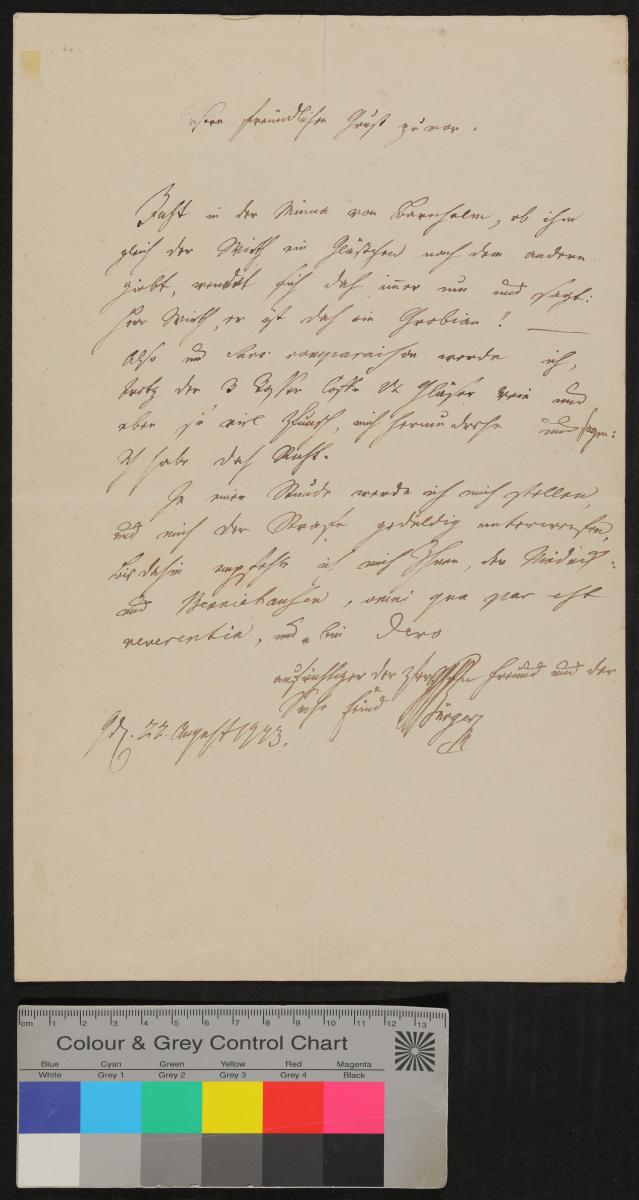 Unsern freundlichen Gruß zuvor.
Just in der Minna von Barnhelm, ob ihm
gleich der Wirth ein Gläschen nach dem andern
giebt, wendet sich doch immer um und sagt:
Herr Wirth, er ist doch ein Grobian! —
Also und sans comparaison werde ich,
trotz der 3 Tassen Caffe Gläser Wein und
eben so viel Punsch, mich herumdrehn und sagen:
Ich habe doch Recht.
In einer Stunde werde ich mich stellen,
und mich der Strafe geduldig unterwerfen,
bis dahin empfehle ich mich Ihnen, der
und Benniehausen, omni qua par est
reverentia, und bin Dero
aufrichtiger der Personen Freund und der
Sache Feind Bürger
22. August 1773.
Colour & Grey Control Chart
cm 1 2 3 4 5 6 7 8 9 10 11 12 13
Blue Cyan Green Yellow Red Magenta
White Grey 1 Grey 2 Grey 3 Grey 4 Black